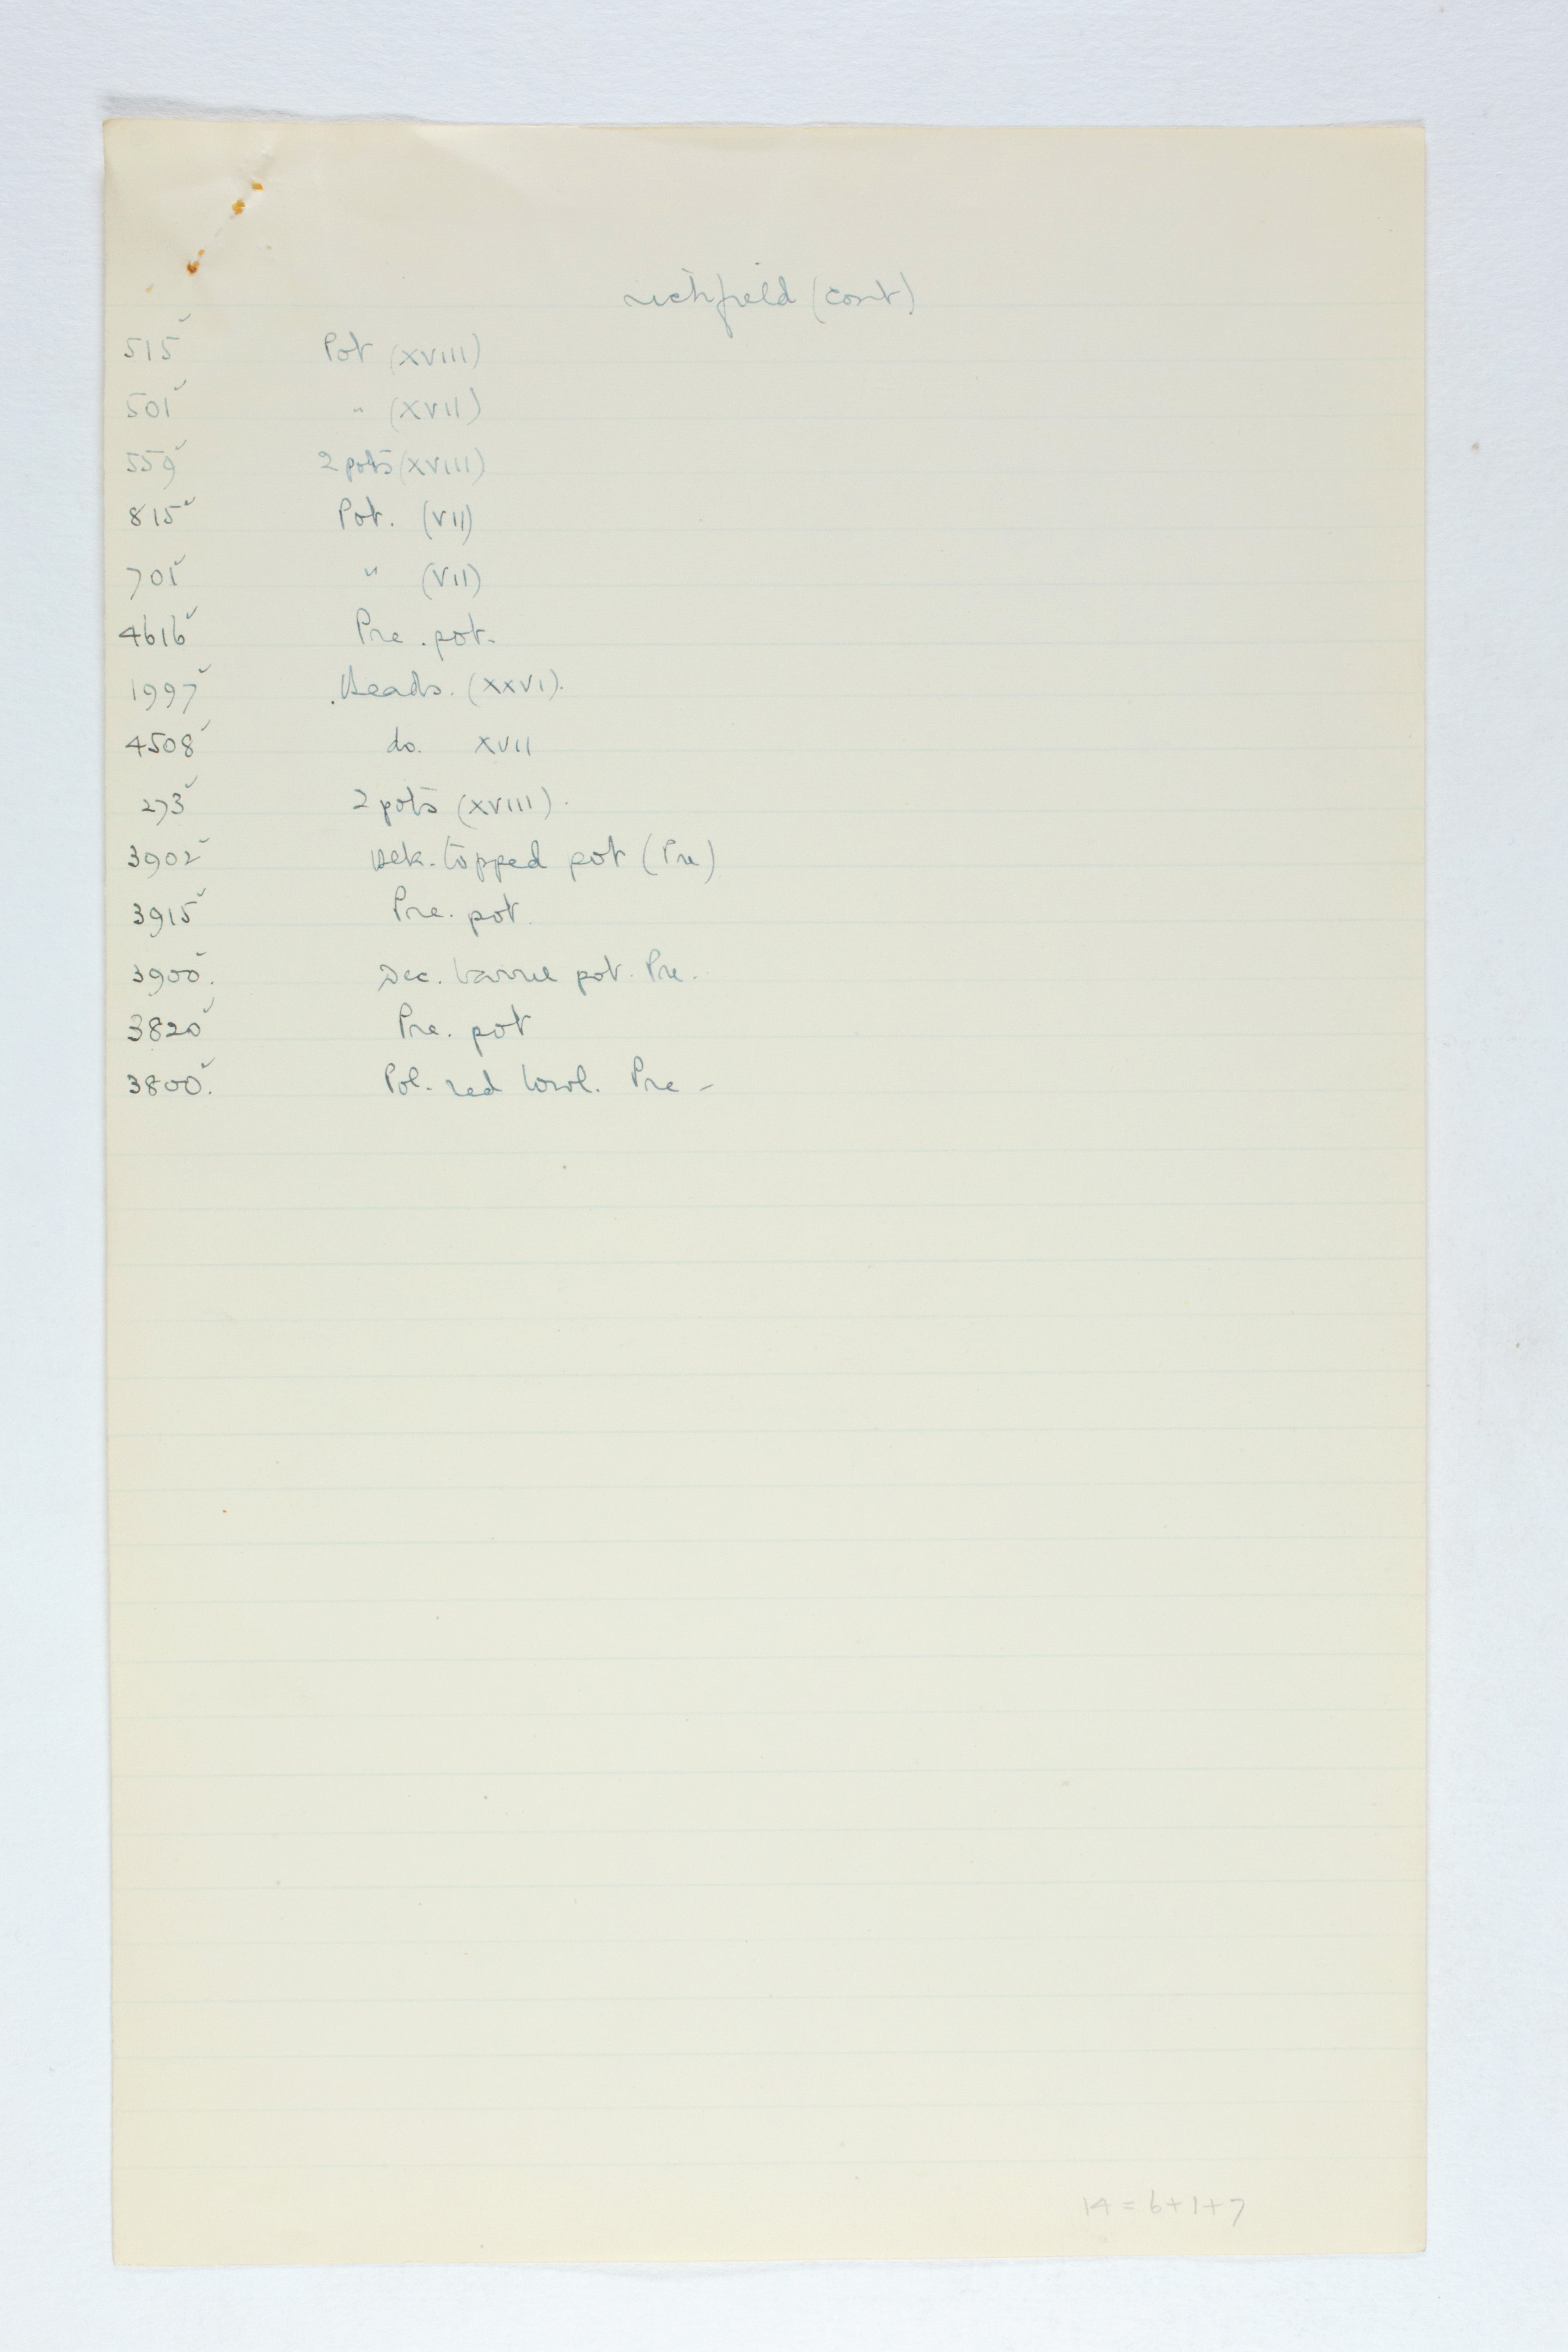 Lichfield (cont)
515 ✓ Pot (XVIII)
501 ✓ " (XVII)
559 ✓ 2 pots (XVIII)
815 ✓ Pot. (VII)
701 ✓ " (VII)
4616 ✓ Pre. pot.
1997 ✓ Beads. (XXVI).
4508 ✓ do. XVII
273 ✓ 2 pots (XVIII).
3902 ✓ Blk. topped pot (Pre)
3915 ✓ Pre. pot.
3900 ✓. Dec. barrel pot. Pre.
3820 ✓ Pre. pot
3800 ✓. Pol. red bowl. Pre -
14 = 6+1+7